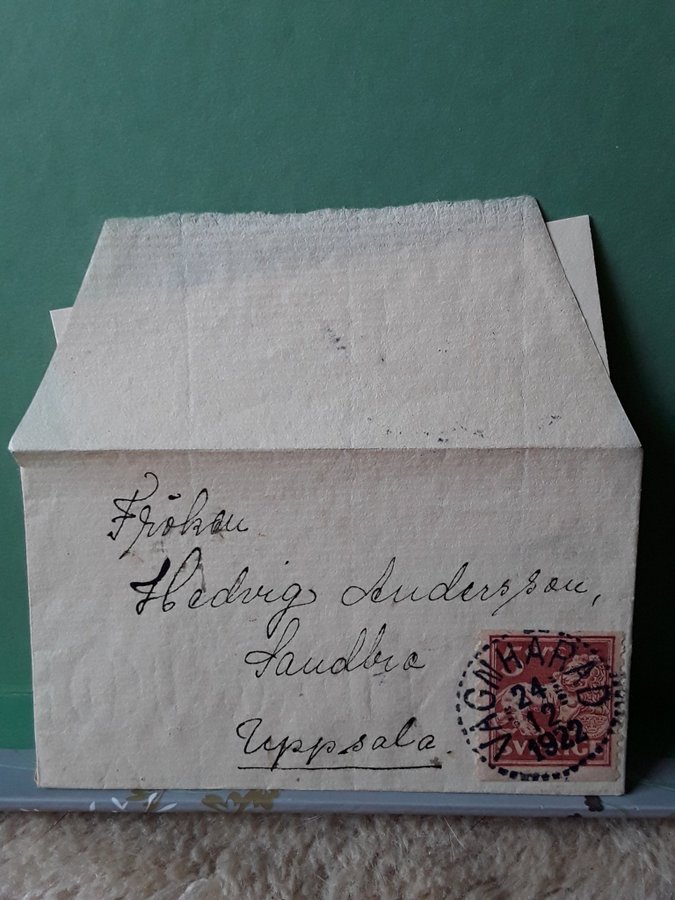 Fröken
Hedvig Andersson,
Sandbro
Uppsala.
VAGNHÄRAD
24
12
1922
SVERIGE